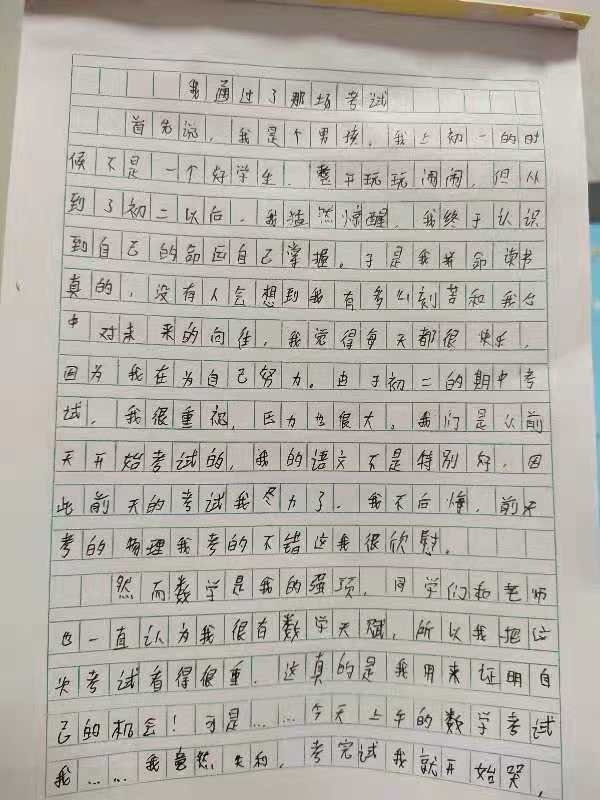 我通过了那场考试
首先说，我是个男孩，我上初一的时
候不是一个好学生，整天玩玩闹闹，但从
到了初二以后，我猛然惊醒，我终于认识
到自己的命运自己掌握。于是我拼命读书
真的，没有人会想到我有多么刻苦和我心
中对未来的向往，我觉得每天都很快乐，
因为我在为自己努力。由于初二的期中考
试，我很重视，压力也很大。我们是从前
天开始考试的，我的语文不是特别好，因
此前天的考试我尽力了，我不后悔，前天
考的物理我考的不错这我很欣慰。
然而数学是我的强项，同学们和老师
也一直认为我很有数学天赋，所以我把这
次考试看得很重，这真的是我用来证明自
己的机会！可是……今天上午的数学考试
我……我竟然失利，考完试我就开始哭，